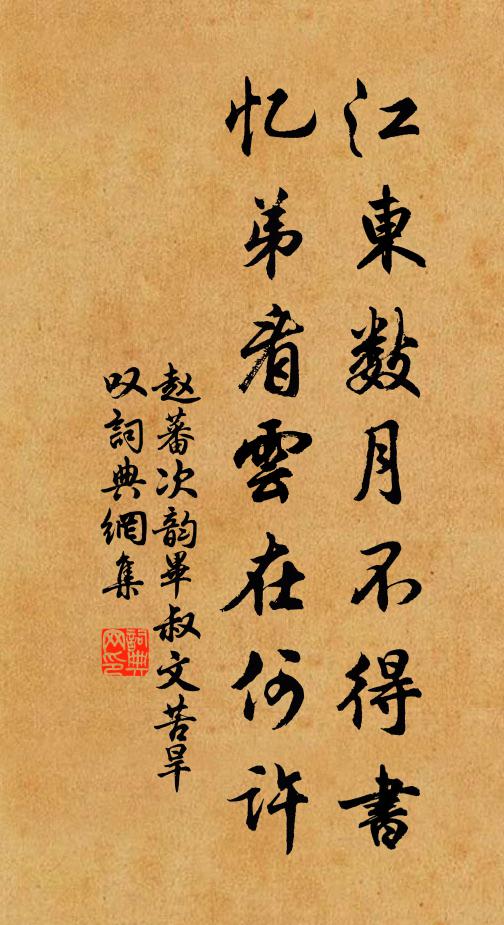 江東數月不得書
忆弟看雲在何許
赵蕃次韵畢叔文苦旱
叹詞典網集
詞典
网印